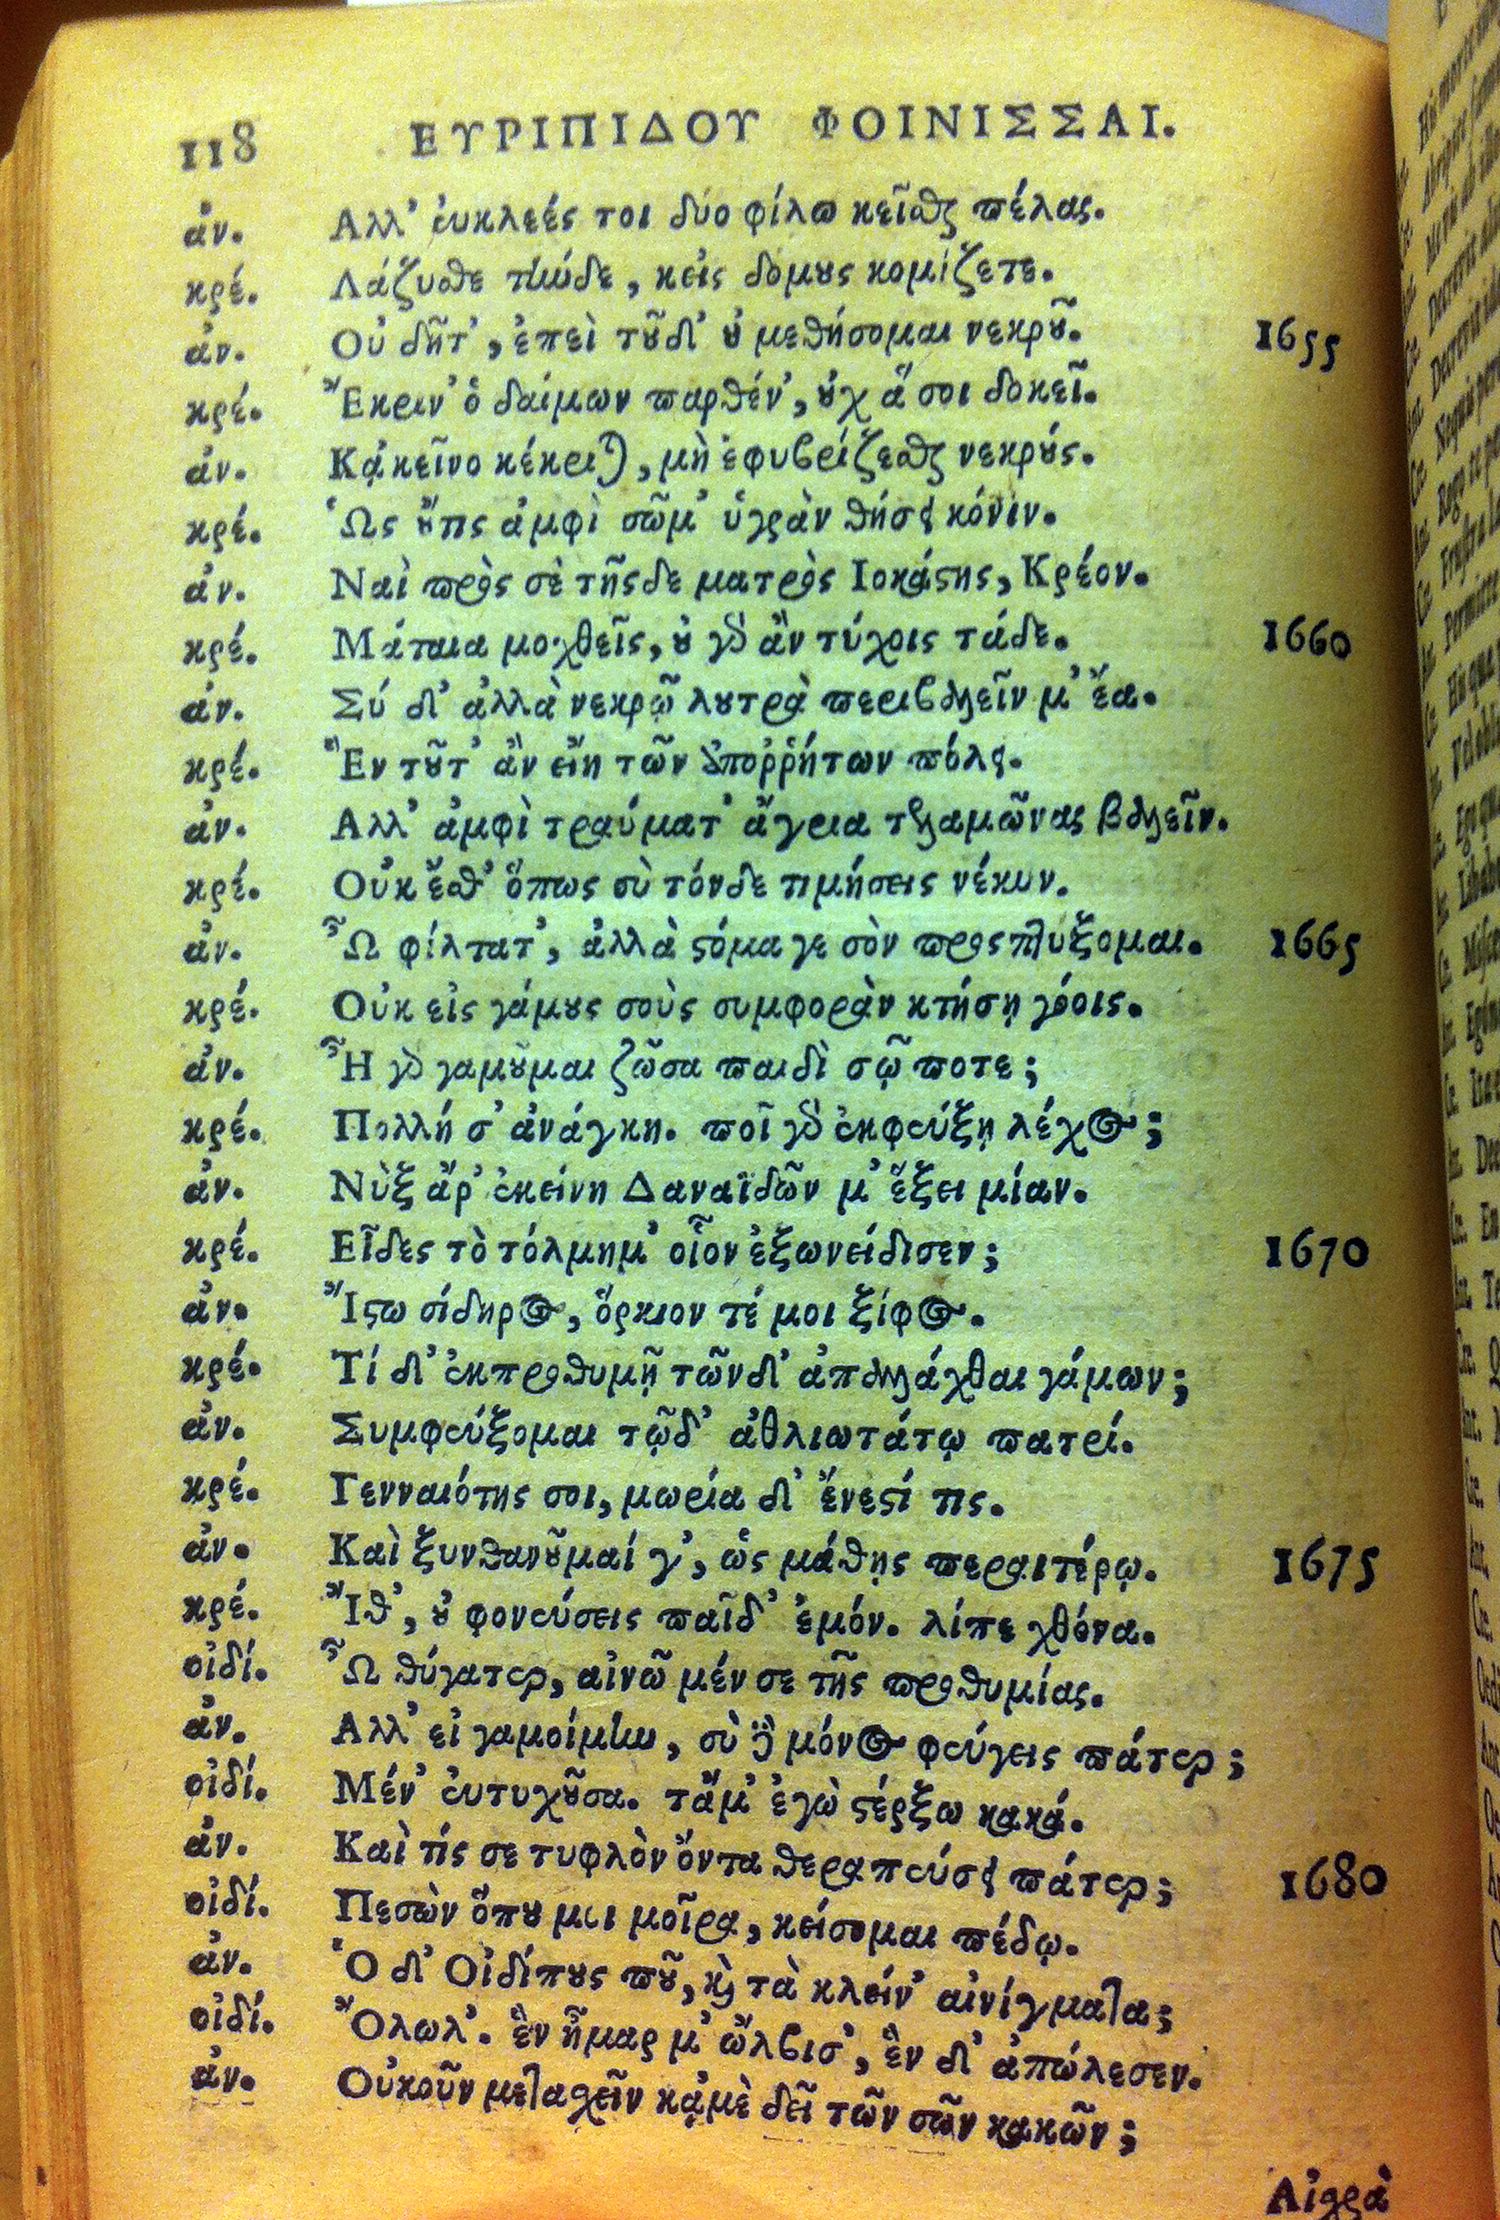 118 ΕΥΡΙΠΙΔΟΥ ΦΟΙΝΙΣΣΑΙ.
ἀν. Αλλ' εὐκλεές τοι δύο φίλω κεῖσθαι πέλας.
κρέ. Λάζυσθε τήνδε, κεἰς δομους κομίζετε.
ἀν. Οὐ δῆτ', ἐπεὶ τοῦδ' οὐ μεθήσομαι νεκροῦ. 1655
κρέ. Ἔκριν' ὁ δαίμων παρθέν', οὐχ ἅ σοι δοκεῖ.
ἀν. Κᾀκεῖνο κέκριται, μὴ ἐφυβρίζεσθαι νεκρούς.
κρέ. Ὡς οὔτις ἀμφὶ σῶμ' ὑγρὰν θήσει κόνιν.
ἀν. Ναὶ πρὸς σὲ τῆςδε ματρὸς Ιοκάστης, Κρέον.
κρέ. Μάταια μοχθεῖς, οὐ γὰρ ἂν τύχοις τάδε. 1660
ἀν. Σύ δ' ἀλλὰ νεκρῷ λουτρὰ περιβαλεῖν μ' ἔα.
κρέ. Ἓν τοῦτ' ἂν εἴη τῶν ἀποῤῥήτων πόλει.
ἀν. Αλλ' ἀμφὶ τραύματ' ἄγρια τελαμῶνας βαλεῖν.
κρέ. Οὐκ ἔσθ' ὅπως σὺ τόνδε τιμήσεις νέκυν.
ἀν. Ὦ φίλτατ', ἀλλὰ στόμα γε σὸν προςπτύξομαι. 1665
κρέ. Οὐκ εἰς γάμους σοὺς συμφορὰν κτήσῃ γόοις.
ἀν. Ἦ γὰρ γαμοῦμαι ζῶσα παιδὶ σῷ ποτε;
κρέ. Πολλή σ' ἀνάγκη. ποῖ γὰρ ἐκφεύξῃ λέχος;
ἀν. Νὺξ ἄρ' ἐκείνη Δαναϊδῶν μ' ἕξει μίαν.
κρέ. Εἶδες τὸ τόλμημ' οἷον ἐξωνείδισεν; 1670
ἀν. Ἴστω σίδηρος, ὅρκιον τέ μοι ξίφος.
κρέ. Τί δ' ἐκπροθυμῇ τῶνδ' ἀπαλλάχθαι γάμων;
ἀν. Συμφεύξομαι τῷδ' ἀθλιωτάτῳ πατρί.
κρέ. Γενναιότης σοι, μωρία δ' ἔνεστί τις.
ἀν. Καὶ ξυνθανοῦμαί γ', ὡς μάθῃς περαιτέρω. 1675
κρέ. Ἴθ', οὐ φονεύσεις παῖδ' ἐμόν. λίπε χθόνα.
οἰδί. Ὦ θύγατερ, αἰνῶ μέν σε τῆς προθυμίας.
ἀν. Αλλ' εἰ γαμοίμην, σὺ δὲ μόνος φεύγεις πάτερ;
οἰδί. Μέν' εὐτυχοῦσα. τἄμ' ἐγὼ στέρξω κακά.
ἀν. Καὶ τίς σε τυφλὸν ὄντα θεραπεύσει πάτερ; 1680
οἰδί. Πεσὼν ὅπου μοι μοῖρα, κείσομαι πέδῳ.
ἀν. Ὁ δ' Οἰδίπους ποῦ, καὶ τὰ κλείν' αἰνίγματα;
οἰδί. Ὄλωλ'. ἓν ἦμαρ μ' ὤλβισ', ἓν δ' ἀπώλεσεν.
ἀν. Οὐκοῦν μετασχεῖν κᾀμὲ δεῖ τῶν σῶν κακῶν;
Αἰσχρὰ